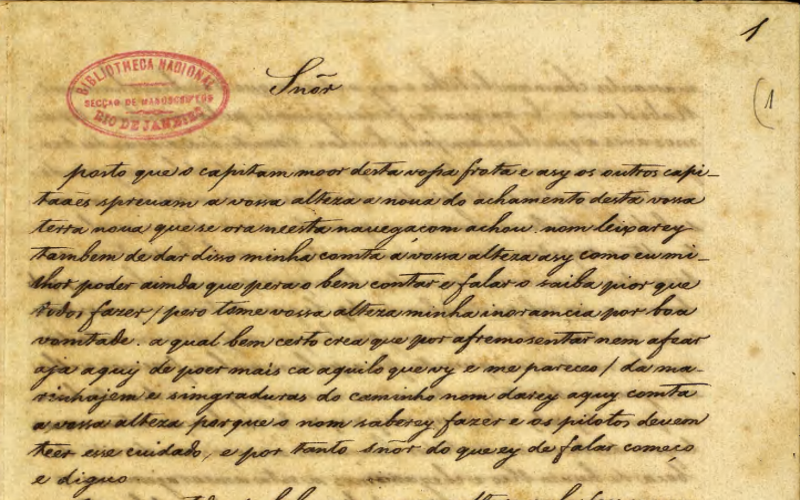 1
BIBLIOTHECA NACIONAL
SECÇÃO DE MANUSCRIPTOS
RIO DE JANEIRO
Sñor
(1
posto que o capitam moor desta vosa frota e asy os outros capi-
taães sprevam a vossa alteza a nova do achamento desta vossa
terra nova que se ora neesta navegaçom achou. nom leixarey
tambem de dar disso minha comta a vossa alteza asy como eu mi-
lhor poder aimda que pera o bem contar e falar o saiba pior que
todos fazer / pero tome vossa alteza minha inoramcia por boa
vomtade. a qual bem certo crea que por afremosentar nem afear
aja aquy de poer mais ca aquilo que vy e me pareceo / da ma-
rinhajem e simgraduras do caminho nom darey aquy comta
a vossa alteza porque o nom saberey fazer e os pilotos devem
teer esse cuidado, e por tanto sñor do que ey de falar começo
e diguo.